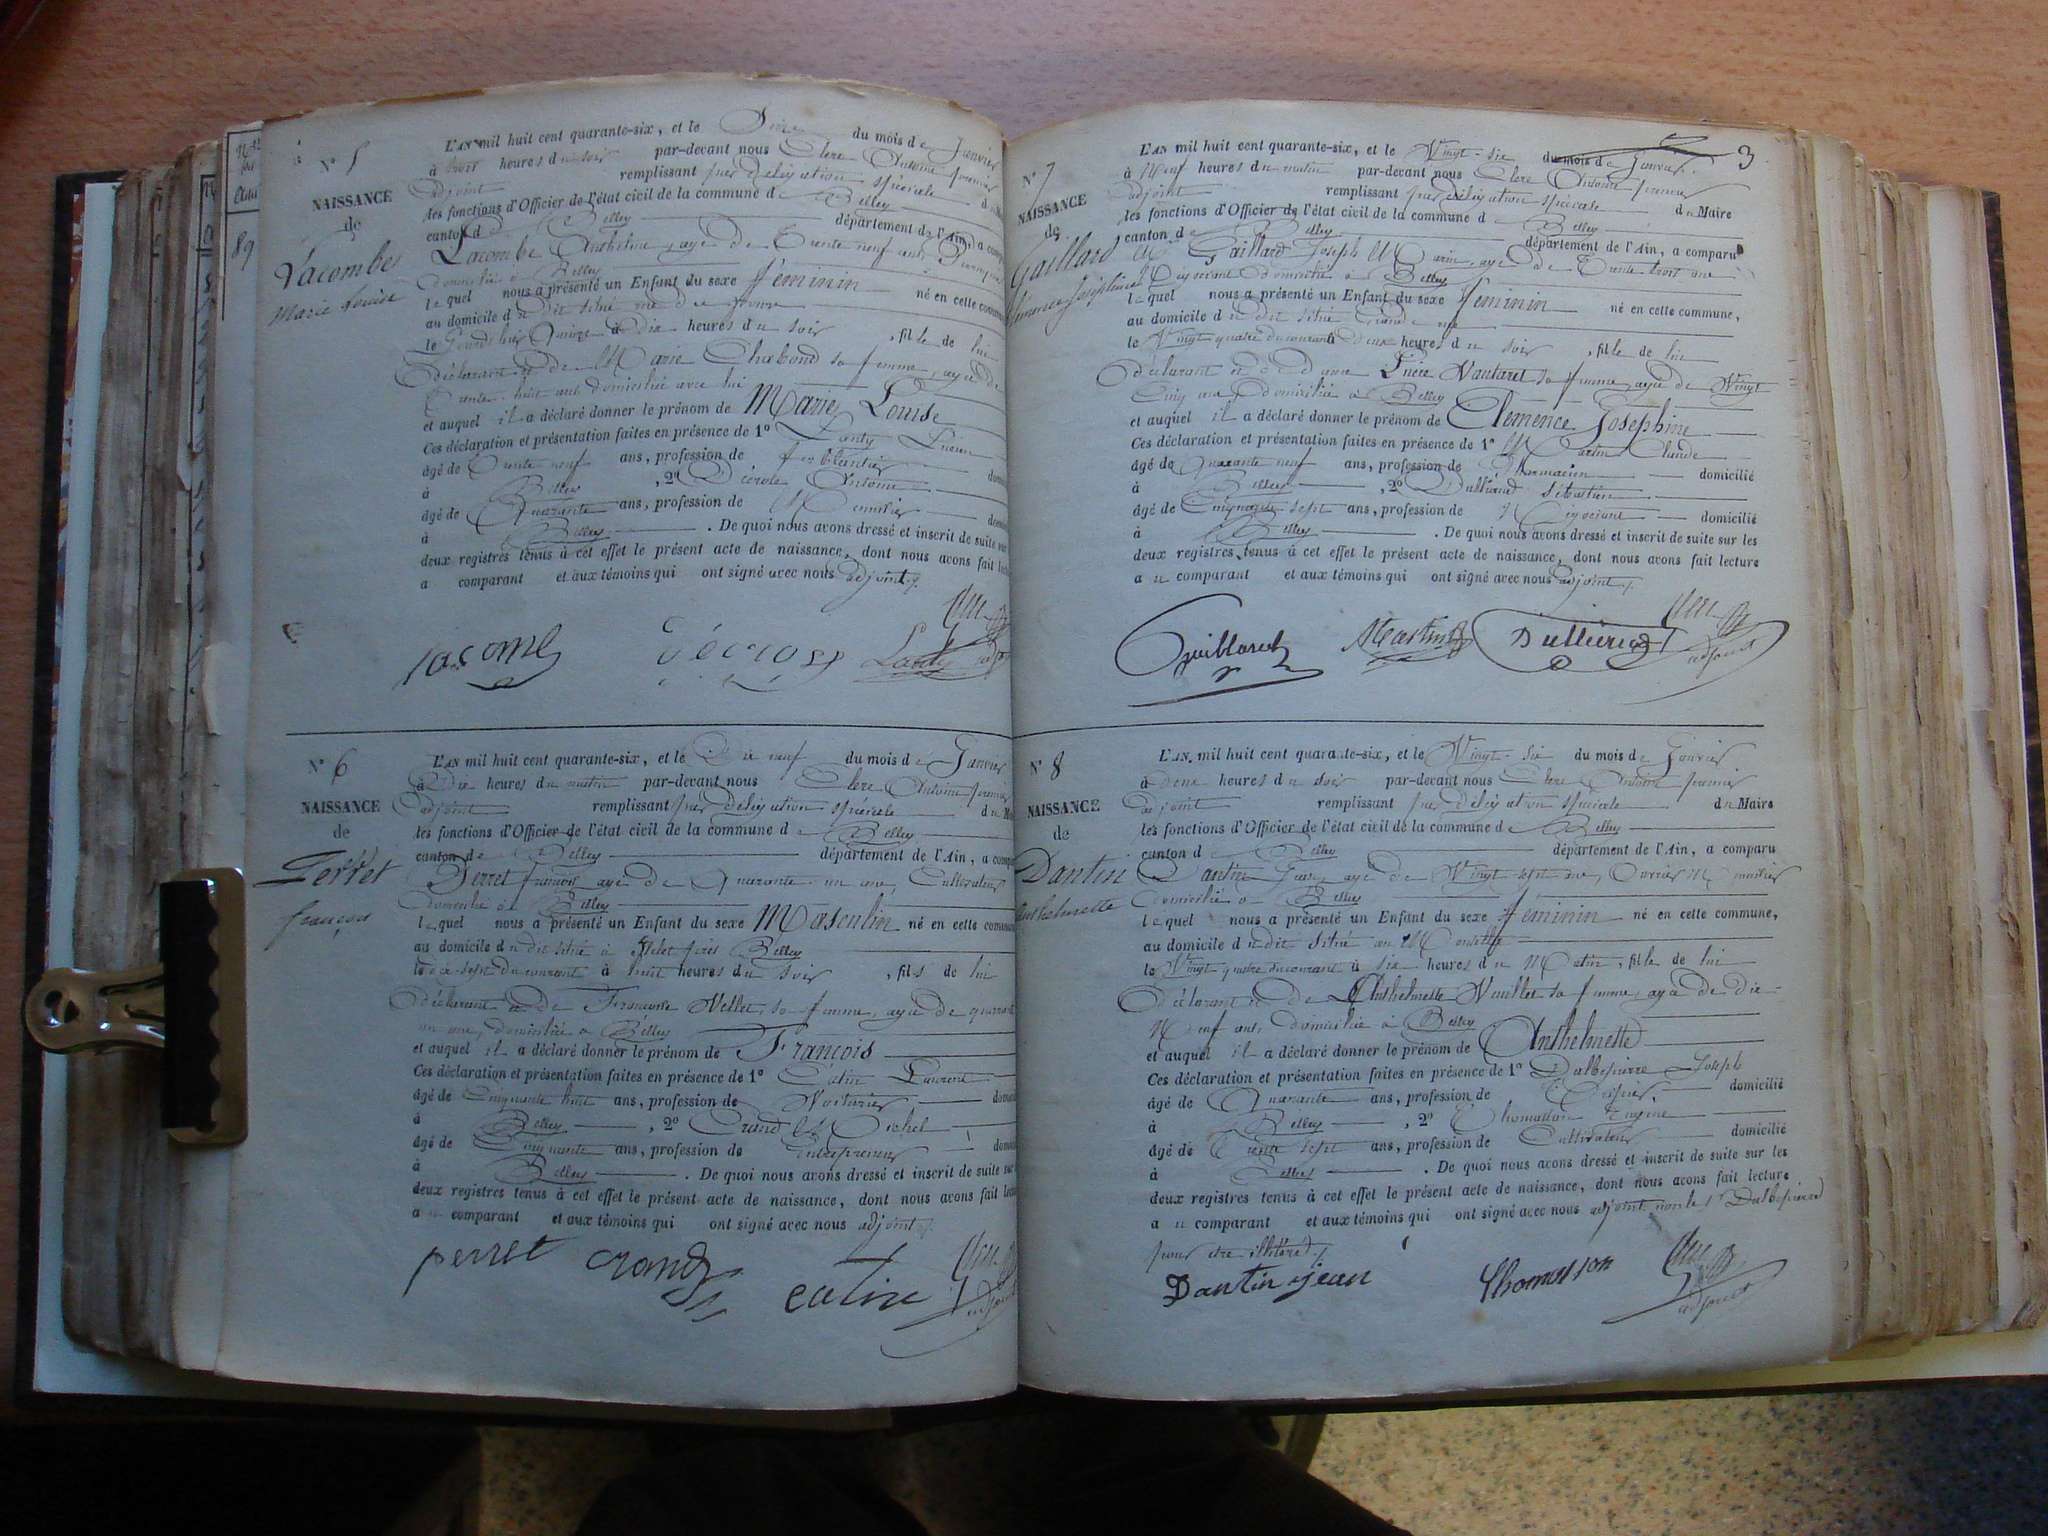 N° 5
NAISSANCE
de
Lacombe
Marie Louise
L'AN mil huit cent quarante-six, et le Seize du mois de Janvier
à trois heures du soir par-devant nous Clerc Antoine premier
adjoint remplissant par délégation spéciale du Maire
les fonctions d'Officier de l'état civil de la commune de Belley
canton de Belley département de l'Ain, a comparu
Lacombe Anthelme, agé de Trente neuf ans
domicilié à Belley
lequel nous a présenté un Enfant du sexe féminin né en cette commune
au domicile du dit situé rue de
le quinze à dix heures du soir, fille de lui
déclarant et de Marie Chabond sa femme, agée de
Trente-huit ans domiciliée avec lui
et auquel il a déclaré donner le prénom de Marie Louise
Ces déclaration et présentation faites en présence de 1° Landy
âgé de Trente neuf ans, profession de ferblantier
à Belley, 2° Décroze Antoine
âgé de Quarante ans, profession de Menuisier
à Belley. De quoi nous avons dressé et inscrit de suite sur
deux registres tenus à cet effet le présent acte de naissance, dont nous avons fait lecture
a comparant et aux témoins qui ont signé avec nous adjoint
lacombe décroze Landy Clerc adjoint
N° 6
NAISSANCE
de
Perret
françois
L'AN mil huit cent quarante-six, et le Dix neuf du mois de Janvier
à Dix heures du matin par-devant nous Clerc Antoine premier
adjoint remplissant par délégation spéciale du Maire
les fonctions d'Officier de l'état civil de la commune de Belley
canton de Belley département de l'Ain, a comparu
Perret françois agé de Quarante un ans, Cultivateur
domicilié à Belley
lequel nous a présenté un Enfant du sexe Masculin né en cette commune
au domicile du dit situé à près Belley
le dix-sept du courant à huit heures du soir, fils de lui
déclarant et de Françoise Vellet, sa femme, agée de quarante
un ans, domiciliée à Belley
et auquel il a déclaré donner le prénom de François
Ces déclaration et présentation faites en présence de 1° Catin Laurent
âgé de Cinquante huit ans, profession de Voiturier
à Belley, 2° Crand Michel
âgé de Cinquante ans, profession de Entrepreneur
à Belley. De quoi nous avons dressé et inscrit de suite sur
deux registres tenus à cet effet le présent acte de naissance, dont nous avons fait lecture
a u comparant et aux témoins qui ont signé avec nous adjoint
perret crand catin Clerc adjoint
3
N° 7
NAISSANCE
de
Gaillard
Clémence Joséphine
L'AN mil huit cent quarante-six, et le Vingt-six du mois de Janvier
à Neuf heures du matin par-devant nous Clerc Antoine premier
adjoint remplissant par délégation spéciale du Maire
les fonctions d'Officier de l'état civil de la commune de Belley
canton de Belley département de l'Ain, a comparu
Mr Gaillard Joseph Marie, agé de Trente trois ans
Négociant domicilié à Belley
lequel nous a présenté un Enfant du sexe féminin né en cette commune,
au domicile du dit situé Grande rue
le Vingt quatre du courant à deux heures du soir, fille de lui
déclarant et de dame Vautaret sa femme, agée de Vingt
Cinq ans domiciliée à Belley
et auquel il a déclaré donner le prénom de Clémence Joséphine
Ces déclaration et présentation faites en présence de 1° Martin Claude
âgé de Quarante neuf ans, profession de Pharmacien domicilié
à Belley, 2° Dulliérand Sébastien
âgé de Cinquante sept ans, profession de Négociant domicilié
à Belley. De quoi nous avons dressé et inscrit de suite sur les
deux registres tenus à cet effet le présent acte de naissance, dont nous avons fait lecture
a u comparant et aux témoins qui ont signé avec nous adjoint
Gaillard Martin Clerc adjoint
N° 8
NAISSANCE
de
Dantin
Anthelmette
L'AN mil huit cent quarante-six, et le Vingt-six du mois de Janvier
à deux heures du soir par-devant nous Clerc Antoine premier
adjoint remplissant par délégation spéciale du Maire
les fonctions d'Officier de l'état civil de la commune de Belley
canton de Belley département de l'Ain, a comparu
Dantin Jean, agé de Vingt sept ans, Ouvrier Menuisier
domicilié à Belley
lequel nous a présenté un Enfant du sexe féminin né en cette commune,
au domicile du dit situé au
le Vingt quatre du courant à six heures du Matin, fille de lui
déclarant et de Anthelmette Vuillet sa femme, agée de dix-
Neuf ans, domiciliée à Belley
et auquel il a déclaré donner le prénom de Anthelmette
Ces déclaration et présentation faites en présence de 1° Dalbepierre Joseph
âgé de Quarante ans, profession de domicilié
à Belley, 2° Thomasson Eugène
âgé de Trente sept ans, profession de Cultivateur domicilié
à Belley. De quoi nous avons dressé et inscrit de suite sur les
deux registres tenus à cet effet le présent acte de naissance, dont nous avons fait lecture
a u comparant et aux témoins qui ont signé avec nous adjoint non le Sr Dalbepierre
pour être illitéré
Dantin jean thomasson Clerc adjoint
89